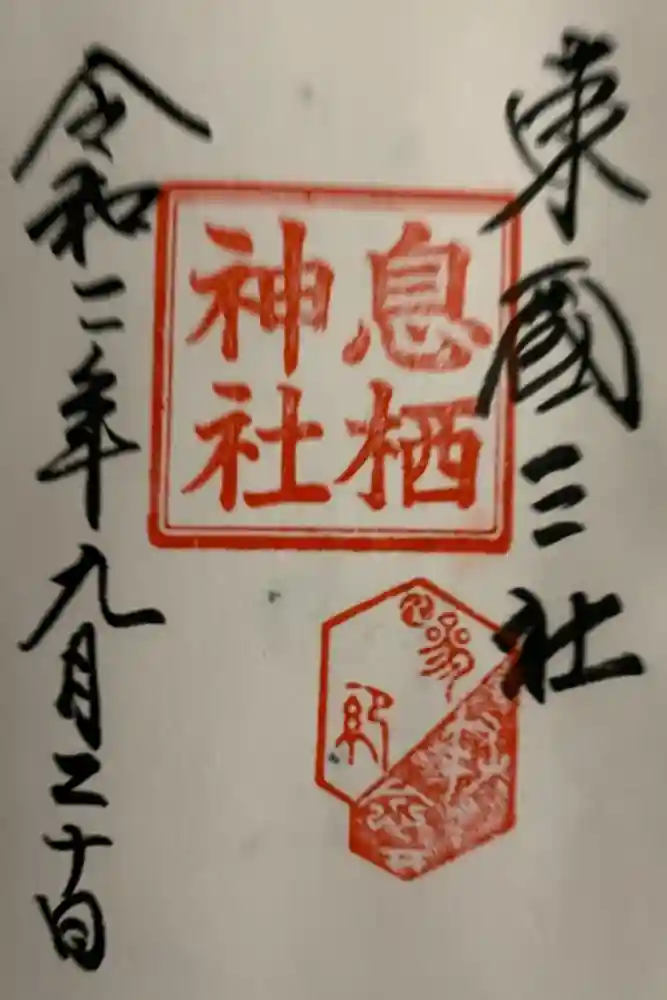 東國三社
息栖
神社
令和二年九月二十日